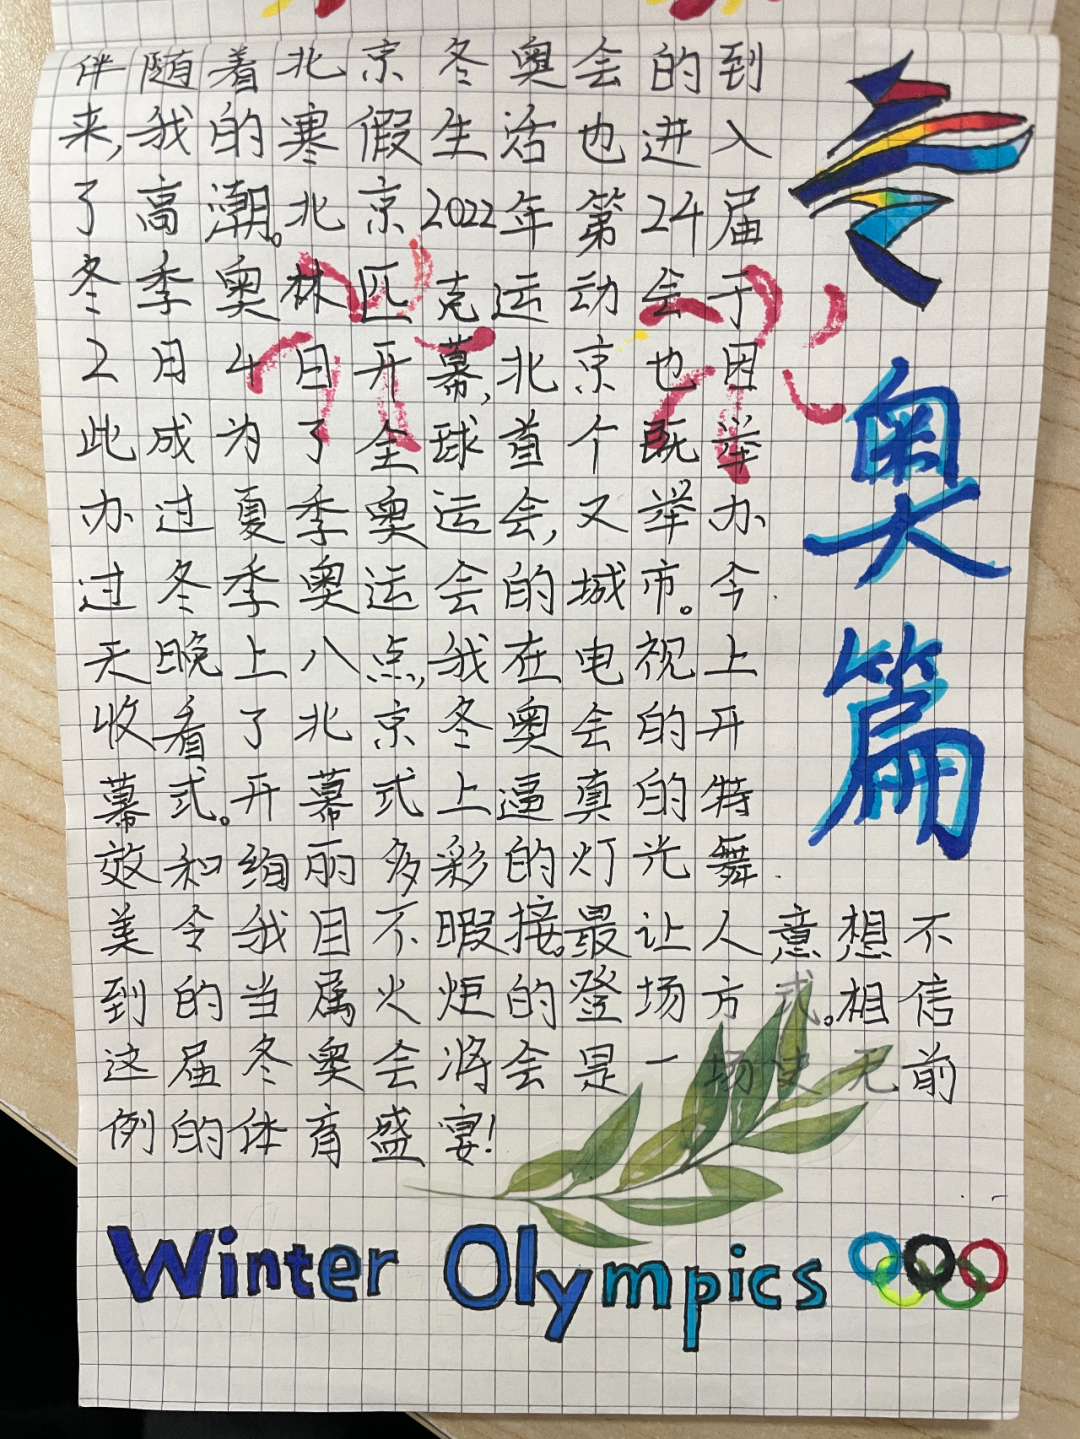 伴随着北京冬奥会的到
来,我的寒假生活也进入
了高潮。北京2022年第24届
冬季奥林匹克运动会于
2月4日开幕,北京也因
此成为了全球首个既举
办过夏季奥运会,又举办
过冬季奥运会的城市。今
天晚上八点,我在电视上
收看了北京冬奥会的开
幕式。开幕式上逼真的特
效和绚丽多彩的灯光舞
美令我目不暇接。最让人意想不
到的当属火炬的登场方式。相信
这届冬奥会将会是一场史无前
例的体育盛宴!
奥
篇
Winter Olympics